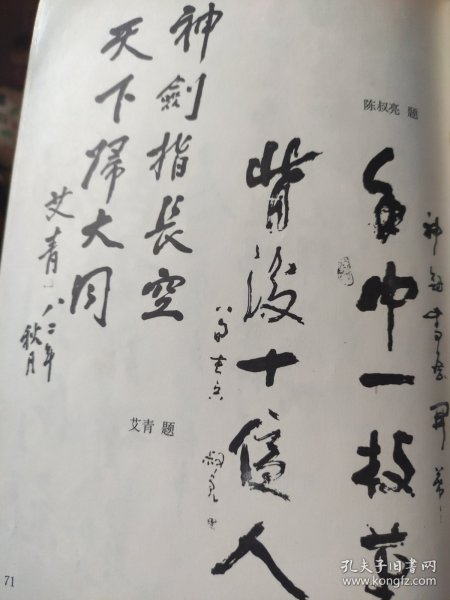 陈叔亮 题
手中一枝笔
背后十亿人
叔亮
神劍指長空
天下歸大同
艾青一九八二年
秋月
艾青 题
71
孔夫子旧书网
www.kongfz.com